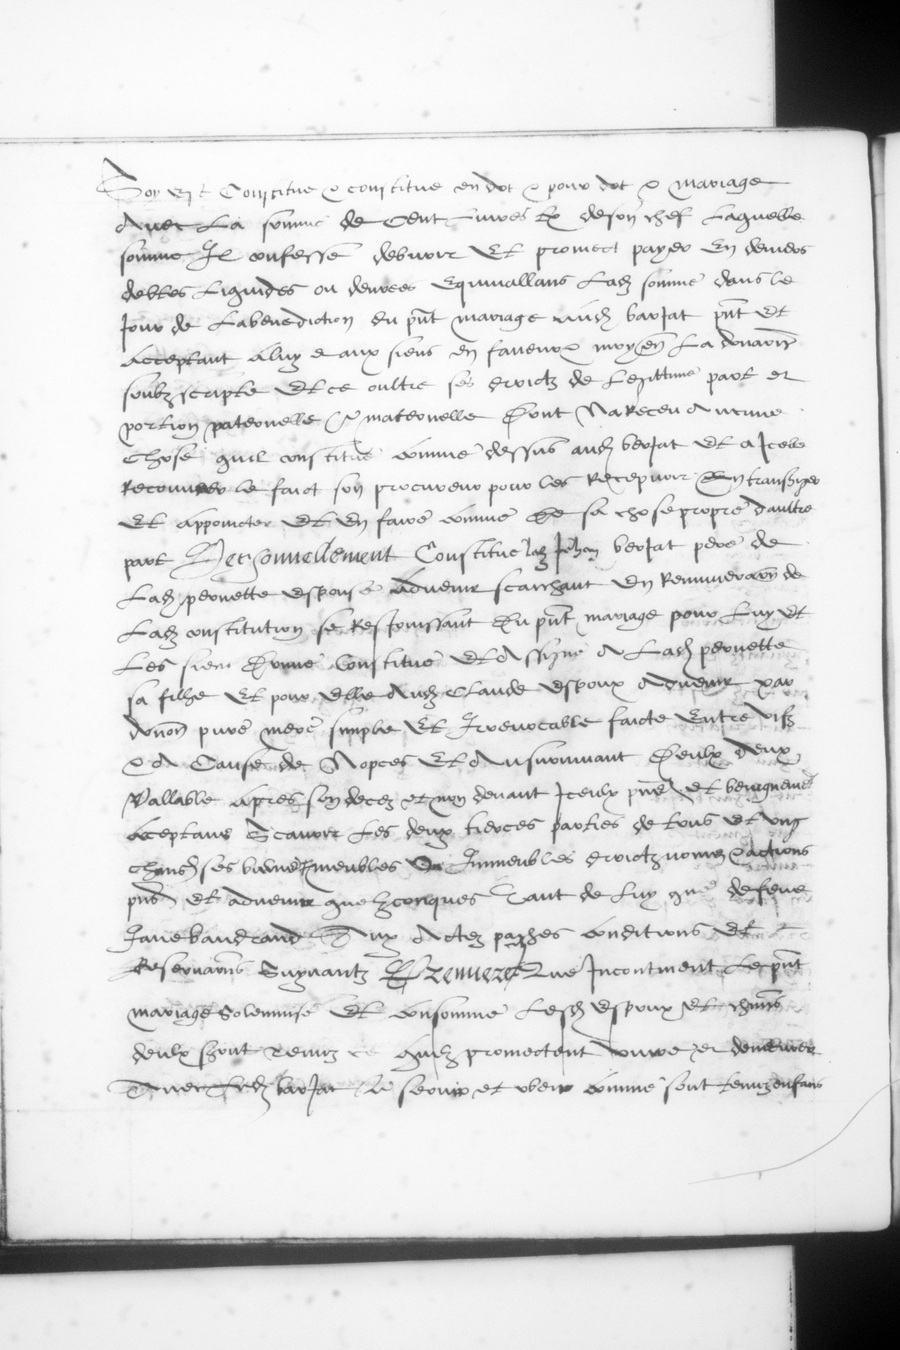 Soy est Constitue & constitue en dot & pour dot & mariage
Avec La somme de Cent Livres tz de son chef Laquelle
somme Il confesse debvoir Et promect payer En deniers
debtes Liquides ou denrees Equivallans Lad somme dans le
Jour de La benediction du pnt mariage aud barjat pnt Et
acceptant a luy & aux siens en faveur moyen La donaon
soubz scripte Et ce oultre ses droictz de Legittime part et
portion paternelle & maternelle Dont Na Receu Aucune
Chose quil constitue comme dessus aud barjat Et a Icelle
Recouvrer le faict son procureur pour les Recepvoir En transiger
Et appoincter Et En faire comme de sa chose propre daultre
part Personnellement Constitue led Jehan barjat pere de
Lad pernette espouse advenir scaichant En Remuneraon de
Lad constitution se Resjouissant Du pnt mariage pour Luy Et
Les siens Donne Constitue Et Assigne A Lad pernette
sa filhe Et pour elle Aud Claude espoux Advenir par
donaon pure mere simple Et Irrevocable faicte Entre vifz
& A Cause de Nopces Et A survivant Deulx deux
Vallable apres son decez et non devant Iceulx pns et benignement
Acceptans Scavoir Les deux tierces parties de tous Et ung
chascun ses biens meubles & Immeubles droictz noms & actions
pns Et advenir quelzconques Tant de Luy que de feue
Jane baudrand Aux Actez pactes conditions Et
Reservaons Suyvantz Premier Que Incontinent Le pnt
mariage Solemnise Et consomme Lesd espoux Et chascuns
deulx seront tenuz promectent vivre et demeurer
Avec Led barjat Le servir et obeir comme sont tenuz enfans